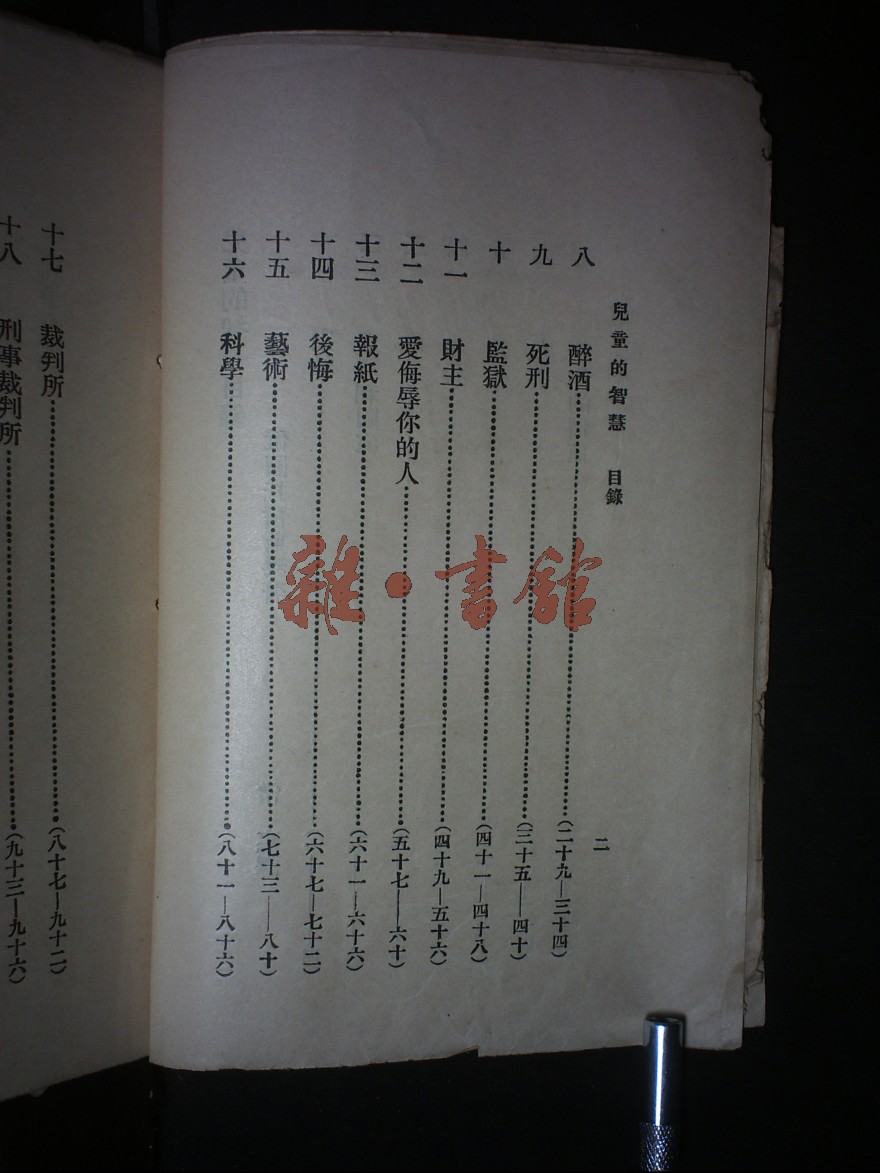 兒童的智慧 目錄 二
八 醉酒……(二十九—三十四)
九 死刑……(三十五—四十)
十 監獄……(四十一—四十八)
十一 財主……(四十九—五十六)
十二 愛侮辱你的人……(五十七—六十)
十三 報紙……(六十一—六十六)
十四 後悔……(六十七—七十二)
十五 藝術……(七十三—八十)
十六 科學……(八十一—八十六)
十七 裁判所……(八十七—九十二)
十八 刑事裁判所……(九十三—九十六)
雜·書館